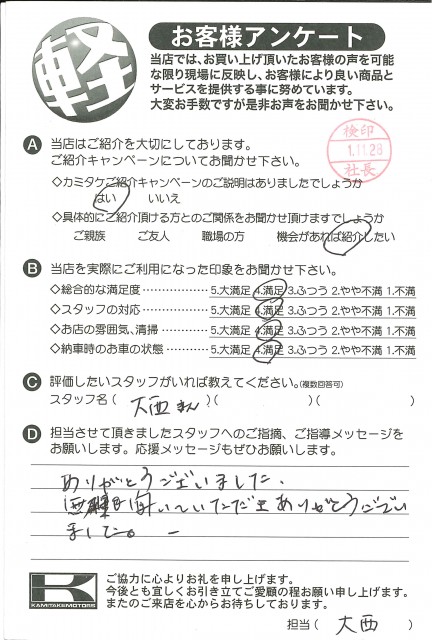 軽
お客様アンケート
当店では、お買い上げ頂いたお客様の声を可能
な限り現場に反映し、お客様により良い商品と
サービスを提供する事に努めています。
大変お手数ですが是非お声をお聞かせ下さい。
検印
1.11.28
社長
A 当店はご紹介を大切にしております。
ご紹介キャンペーンについてお聞かせ下さい。
◇カミタケご紹介キャンペーンのご説明はありましたでしょうか
はい いいえ
◇具体的にご紹介頂ける方とのご関係をお聞かせ頂けますでしょうか
ご親族 ご友人 職場の方 機会があれば紹介したい
B 当店を実際にご利用になった印象をお聞かせ下さい。
◇総合的な満足度 ……………… 5.大満足 4.満足 3.ふつう 2.やや不満 1.不満
◇スタッフの対応 ……………… 5.大満足 4.満足 3.ふつう 2.やや不満 1.不満
◇お店の雰囲気、清掃 ………… 5.大満足 4.満足 3.ふつう 2.やや不満 1.不満
◇納車時のお車の状態 ………… 5.大満足 4.満足 3.ふつう 2.やや不満 1.不満
C 評価したいスタッフがいれば教えてください。(複数回答可)
スタッフ名( 大西さん )( )( )
D 担当させて頂きましたスタッフへのご指摘、ご指導メッセージを
お願いします。応援メッセージもぜひお願いします。
ありがとうございました、
いただきありがとうござい
ました。
K
KAMITAKE MOTORS
ご協力に心よりお礼を申し上げます。
今後とも宜しくお引き立てご愛顧の程お願い申し上げます。
またのご来店を心からお待ちしております。
担当( 大西 )